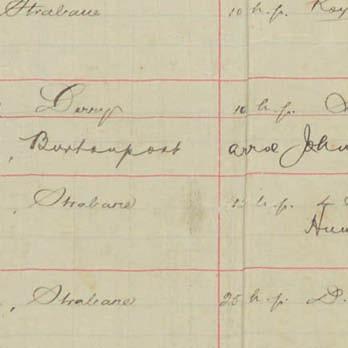 Strabane 10 h.p. Roy
" Derry 16 h.p. S
" Burtonport arroe John
" Strabane 15 h.p. 4
Hun
" Strabane 25 h.p. D.